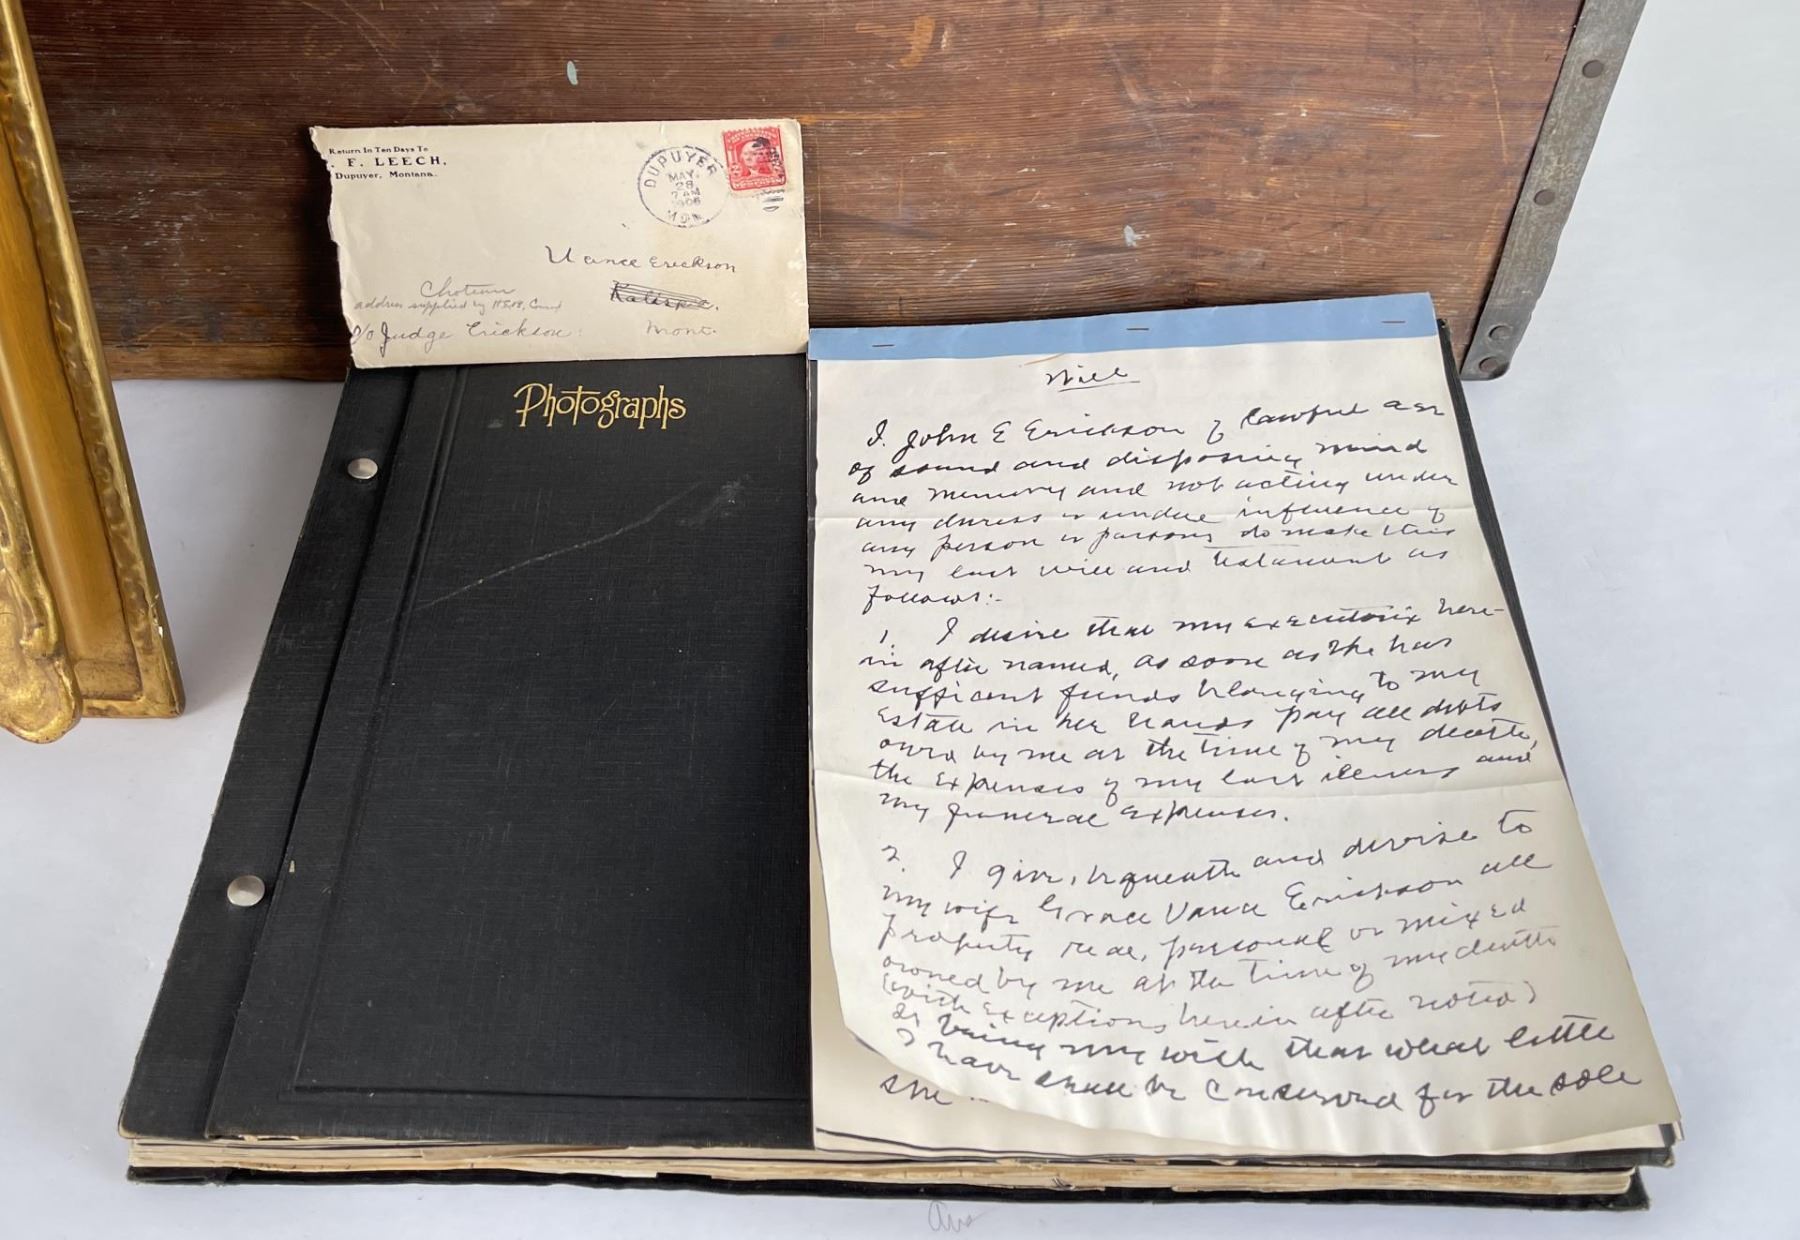 Return In Ten Days To
. F. LEECH,
Dupuyer, Montana.
DUPUYER
MAY
28
7 AM
1906
MON
Vance Erickson
Kalispell.
Mont.
Choteau
address supplied by
c/o Judge Erickson
Photographs
Will
I. John E Erickson of lawful age
of sound and disposing mind
and memory and not acting under
any duress or undue influence of
any person or persons do make this
my last will and testament as
follows:-
1. I desire that my executrix here-
in after named, as soon as she has
sufficient funds belonging to my
Estate in her hands pay all debts
owed by me at the time of my death,
the expenses of my last illness and
my funeral expenses.
2. I give, bequeath and devise to
my wife Grace Vance Erickson all
property real, personal or mixed
owned by me at the time of my death
(with exceptions herein after noted)
It being my wish that what little
I have shall be conserved for the sole